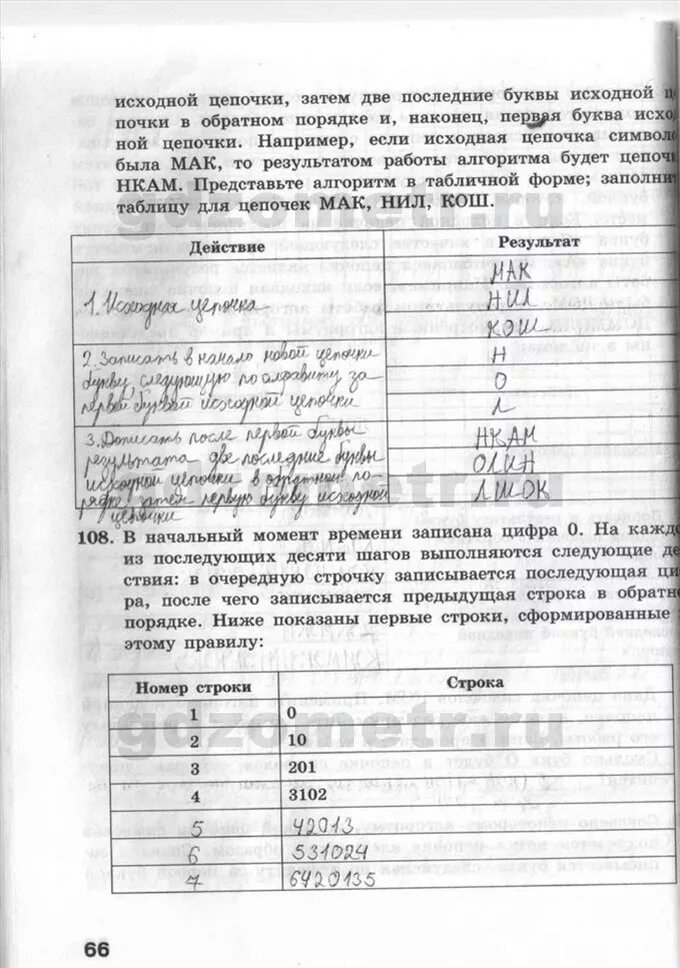 исходной цепочки, затем две последние буквы исходной це
почки в обратном порядке и, наконец, первая буква исход
ной цепочки. Например, если исходная цепочка символо
была МАК, то результатом работы алгоритма будет цепочк
НКАМ. Представьте алгоритм в табличной форме; заполнит
таблицу для цепочек МАК, НИЛ, КОШ.
Действие
Результат
1. Исходная цепочка
МАК
НИЛ
КОШ
2. Записать в начало новой цепочки
букву, следующую по алфавиту за
первой буквой исходной цепочки
Н
О
Л
3. Дописать после первой буквы
результата две последние буквы
исходной цепочки в обратном по-
рядке, затем первую букву исходной
цепочки
НКАМ
ОЛИН
ЛШОК
108. В начальный момент времени записана цифра 0. На каждо
из последующих десяти шагов выполняются следующие де
ствия: в очередную строчку записывается последующая ци
ра, после чего записывается предыдущая строка в обратн
порядке. Ниже показаны первые строки, сформированные
этому правилу:
Номер строки
Строка
1
0
2
10
3
201
4
3102
5
42013
6
531024
7
6420135
66
gdzometr.ru
gdzometr.ru
gdzometr.ru